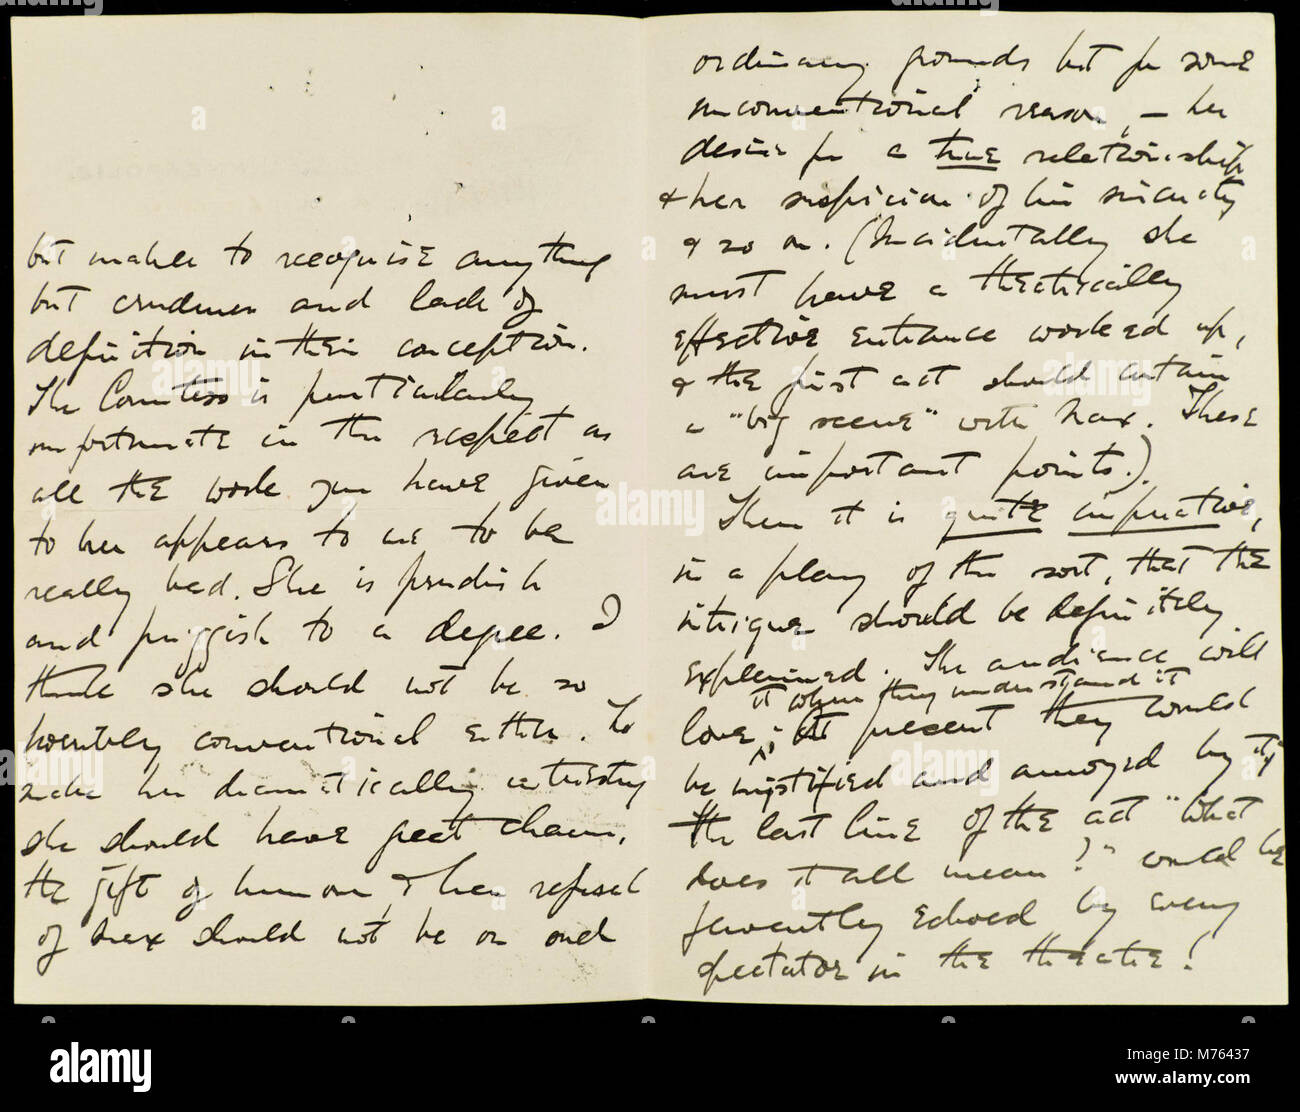 but unable to recognise anything
but crudeness and lack of
definition in their conception.
The Countess is particularly
unfortunate in this respect as
all the work you have given
to her appears to me to be
really bad. She is prudish
and priggish to a degree. I
think she should not be so
horribly conventional either. To
make her dramatically interesting
she should have great charm,
the gift of humour & her refusal
of Max should not be on such
ordinary grounds but for some
unconventional reason, – her
desire for a true relationship
& her suspicion of his sincerity
& so on. (Incidentally she
must have a theatrically
effective entrance worked up,
& the first act should contain
a "big scene" with Max. These
are important points.)
Then it is quite imperative,
in a play of this sort, that the
intrigue should be definitely
explained. The audience will
it when they understand it
love, At present they would
be mystified and annoyed by it
The last line of the act "What
does it all mean?" would be
fervently echoed by every
spectator in the theatre!
a alamy
alamy
Image ID: M76437
www.alamy.com